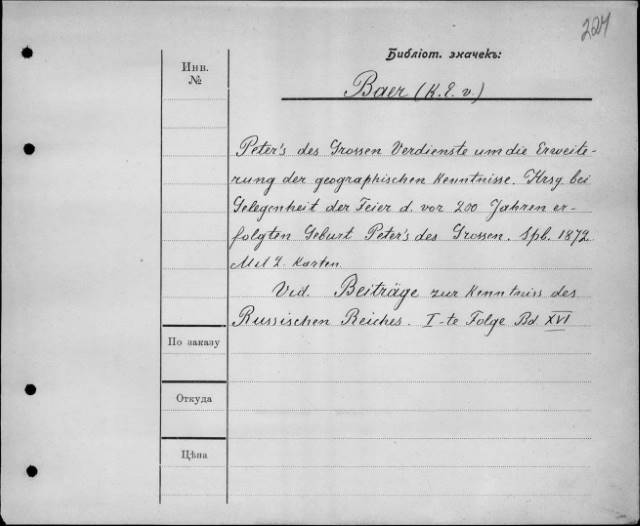 224
Библіот. значекъ:
Инв.
№
Baer (K. E. v.)
Peter's des Grossen Verdienste um die Erweite-
rung der geographischen Kenntnisse. Hrsg. bei
Gelegenheit der Feier d. vor 200 Jahren er-
folgten Geburt Peter's des Grossen. Spb. 1872.
Mit 2. Karten.
Vid. Beiträge zur Kenntniss des
Russischen Reiches. I-te Folge Bd XVI
По заказу
Откуда
Цѣна